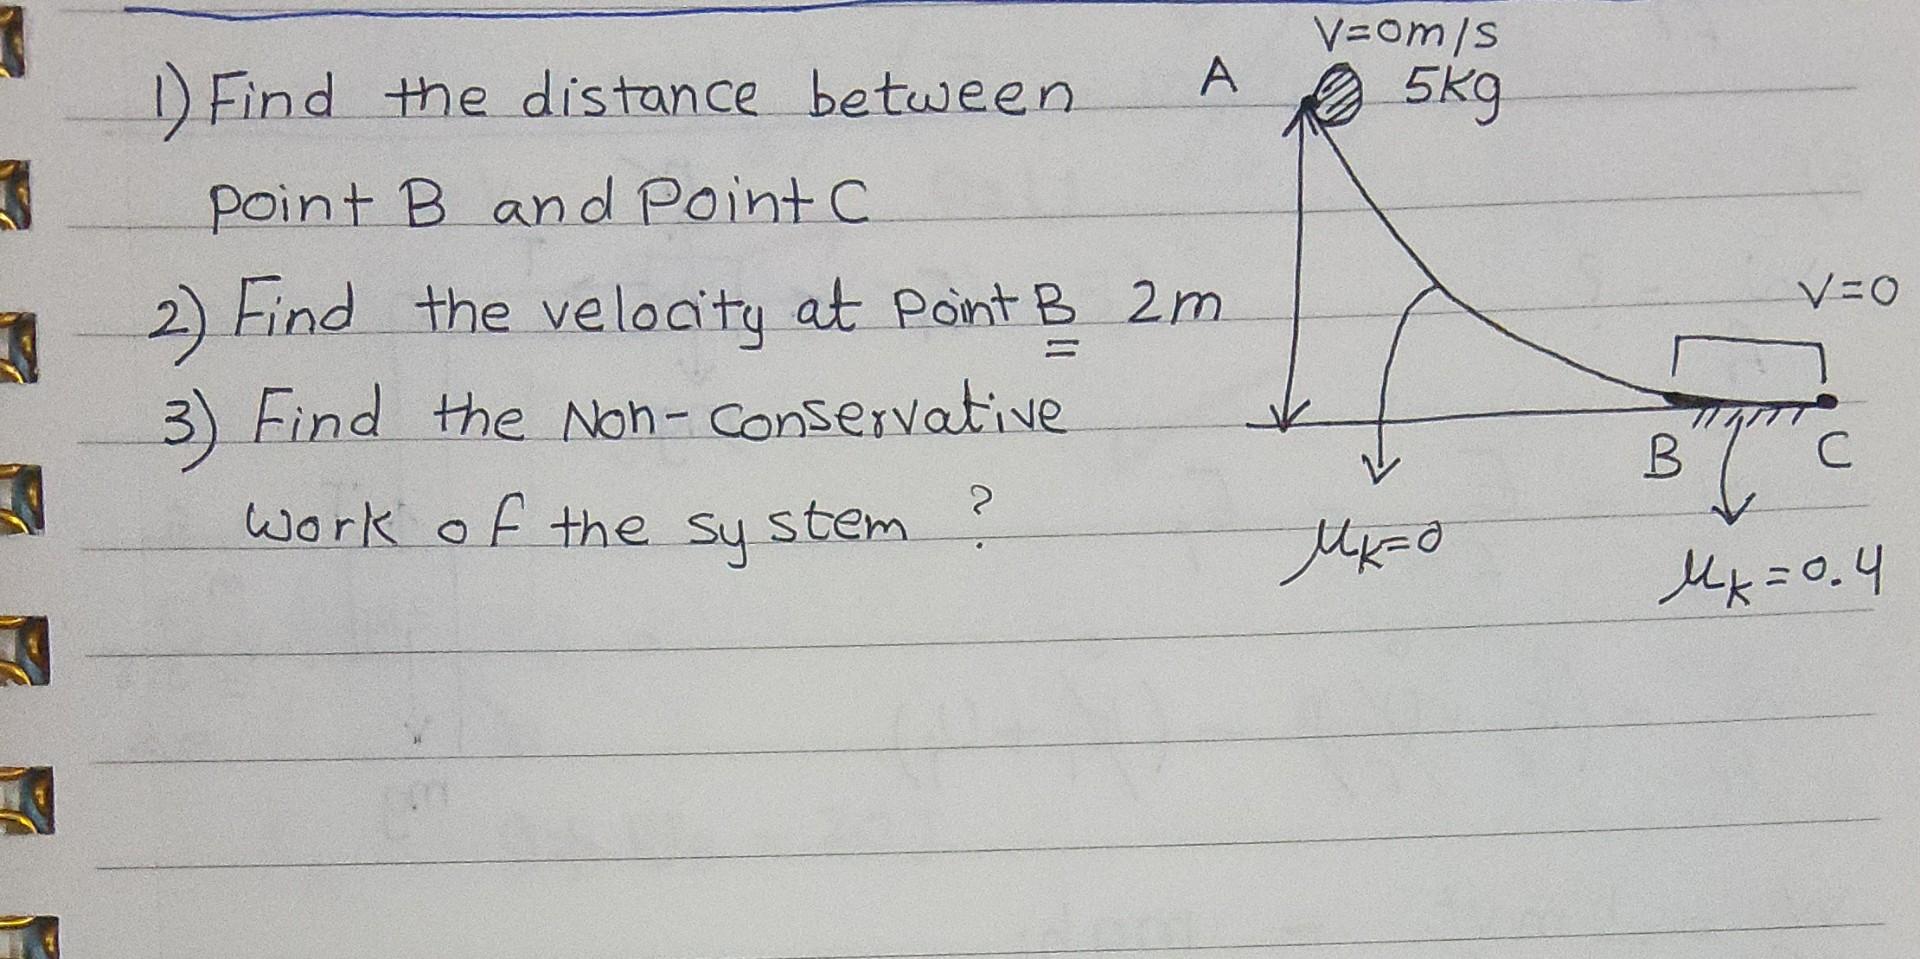 1) Find the distance between
point B and Point C
2) Find the velocity at Point B
3) Find the Non-conservative
work of the system ?
V=0m/s
A
5kg
2m
V=0
B
C
μk=0
μk=0.4